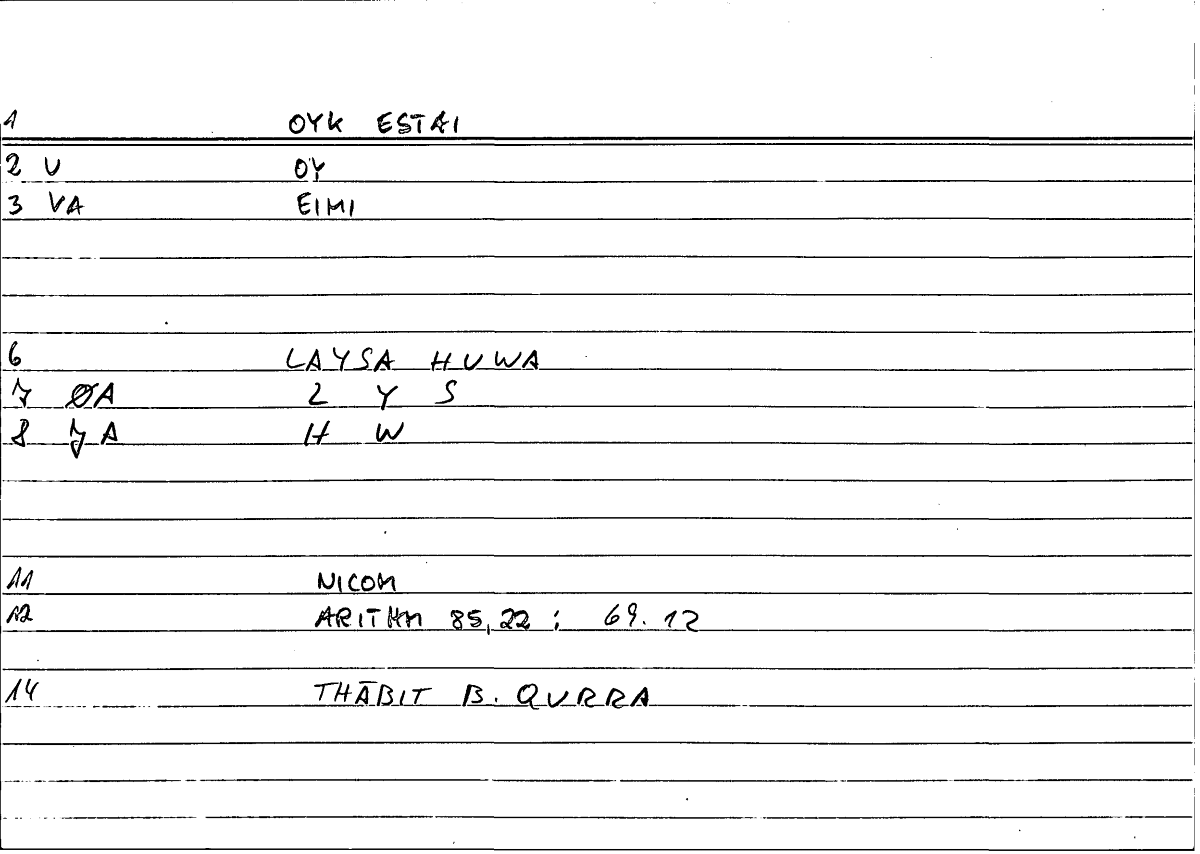 1 OYK ESTAI
2 V OY
3 VA EIMI
6 LAYSA HUWA
7 ØA L Y S
8 7 A H W
11 NICOM
12 ARITHM 85,22 ; 69.12
14 THĀBIT B. QURRA